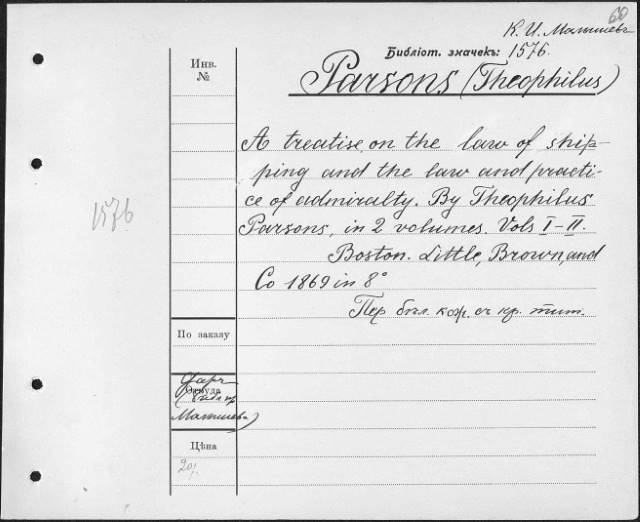 60
К. И. Малышевъ
Библіот. значекъ: 1576.
Инв.
№
Parsons (Theophilus)
A treatise on the law of ship-
ping and the law and practi-
ce of admiralty. By Theophilus
Parsons, in 2 volumes. Vols I–II.
Boston. Little, Brown, and
Co 1869 in 8°
Пер. бѣл. кож. съ кр. тит.
1576
По заказу
Даръ
Откуда
Малышева)
Цѣна
20/.